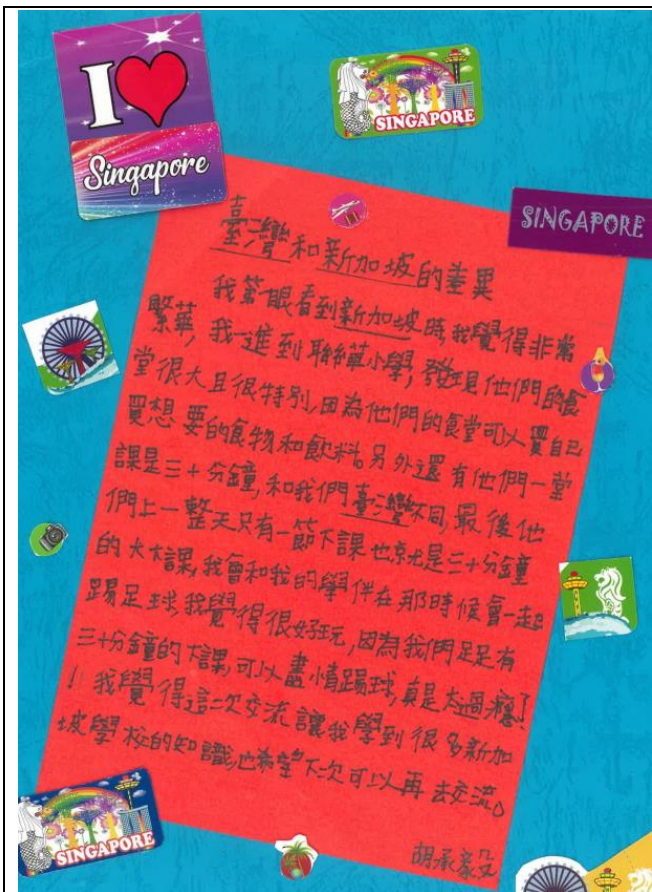 I
Singapore
SINGAPORE
SINGAPORE
臺灣和新加坡的差異
我第一眼看到新加坡時,我覺得非常
繁華,我一進到聯華小學,發現他們的食
堂很大且很特別,因為他們的食堂可以買自己
買想要的食物和飲料。另外還有他們一堂
課是三十分鐘,和我們臺灣不同,最後他
們上一整天只有一節下課也就是三十分鐘
的大下課,我會和我的學伴在那時候會一起
踢足球,我覺得很好玩,因為我們足足有
三十分鐘的下課,可以盡情踢球,真是太過癮了
!我覺得這次交流讓我學到很多新加
坡學校的知識,也希望下次可以再去交流。
胡承毅
SINGAPORE